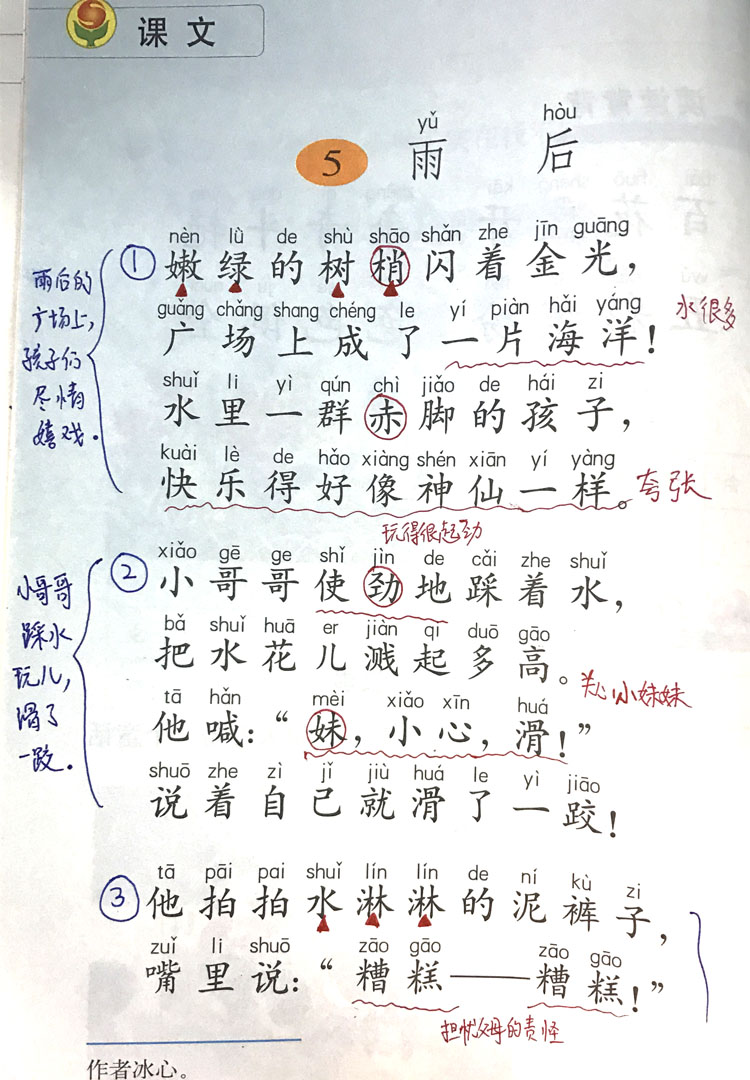 课文
yǔ hòu
5 雨 后
nèn lǜ de shù shāo shǎn zhe jīn guāng
① 嫩绿的树梢闪着金光，
guǎng chǎng shang chéng le yí piàn hǎi yáng
广场上成了一片海洋！
水很多
shuǐ li yì qún chì jiǎo de hái zi
水里一群赤脚的孩子，
kuài lè de hǎo xiàng shén xiān yí yàng
快乐得好像神仙一样。
夸张
雨后的
广场上，
孩子们
尽情
嬉戏．
玩得很起劲
xiǎo gē ge shǐ jìn de cǎi zhe shuǐ
② 小哥哥使劲地踩着水，
bǎ shuǐ huā er jiàn qi duō gāo
把水花儿溅起多高。
关心小妹妹
tā hǎn mèi xiǎo xīn huá
他喊：“妹，小心，滑！”
shuō zhe zì jǐ jiù huá le yì jiāo
说着自己就滑了一跤！
小哥哥
踩水
玩儿，
滑了
一跤．
tā pāi pai shuǐ lín lín de ní kù zi
③ 他拍拍水淋淋的泥裤子，
zuǐ li shuō zāo gāo zāo gāo
嘴里说：“糟糕——糟糕！”
担忧父母的责怪
作者冰心。